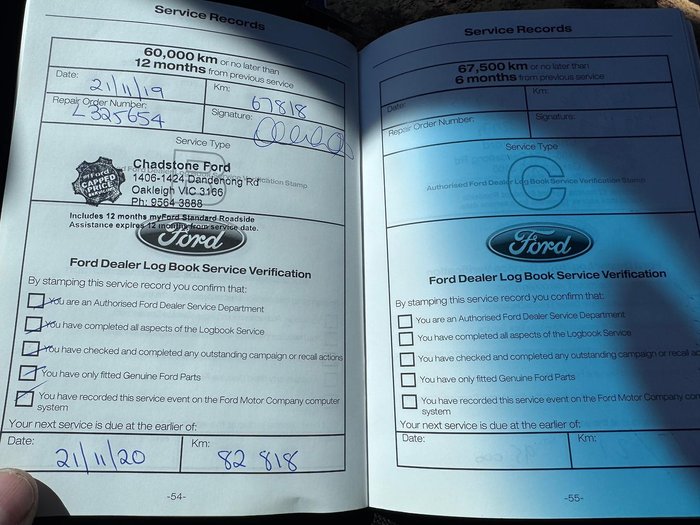 Service Records
60,000 km or no later than
12 months from previous service
Date: 21/11/19
Km: 67818
Repair Order Number: L325654
Signature:
Service Type
B
myFord
CAPPED
PRICE
Chadstone Ford
1406-1424 Dandenong Rd
Oakleigh VIC 3166
Ph: 9564 3888
Includes 12 months myFord Standard Roadside
Assistance expires 12 months from service date.
Ford
Ford Dealer Log Book Service Verification
By stamping this service record you confirm that:
You are an Authorised Ford Dealer Service Department
You have completed all aspects of the Logbook Service
You have checked and completed any outstanding campaign or recall actions
You have only fitted Genuine Ford Parts
You have recorded this service event on the Ford Motor Company computer
system
Your next service is due at the earlier of:
Date: 21/11/20
Km: 82 818
-54-
Service Records
67,500 km or no later than
6 months from previous service
Date:
Km:
Repair Order Number:
Signature:
Service Type
C
Authorised Ford Dealer Log Book Service Verification Stamp
Ford
Ford Dealer Log Book Service Verification
By stamping this service record you confirm that:
You are an Authorised Ford Dealer Service Department
You have completed all aspects of the Logbook Service
You have checked and completed any outstanding campaign or recall ac
You have only fitted Genuine Ford Parts
You have recorded this service event on the Ford Motor Company com
system
Your next service is due at the earlier of:
Date:
Km:
-55-